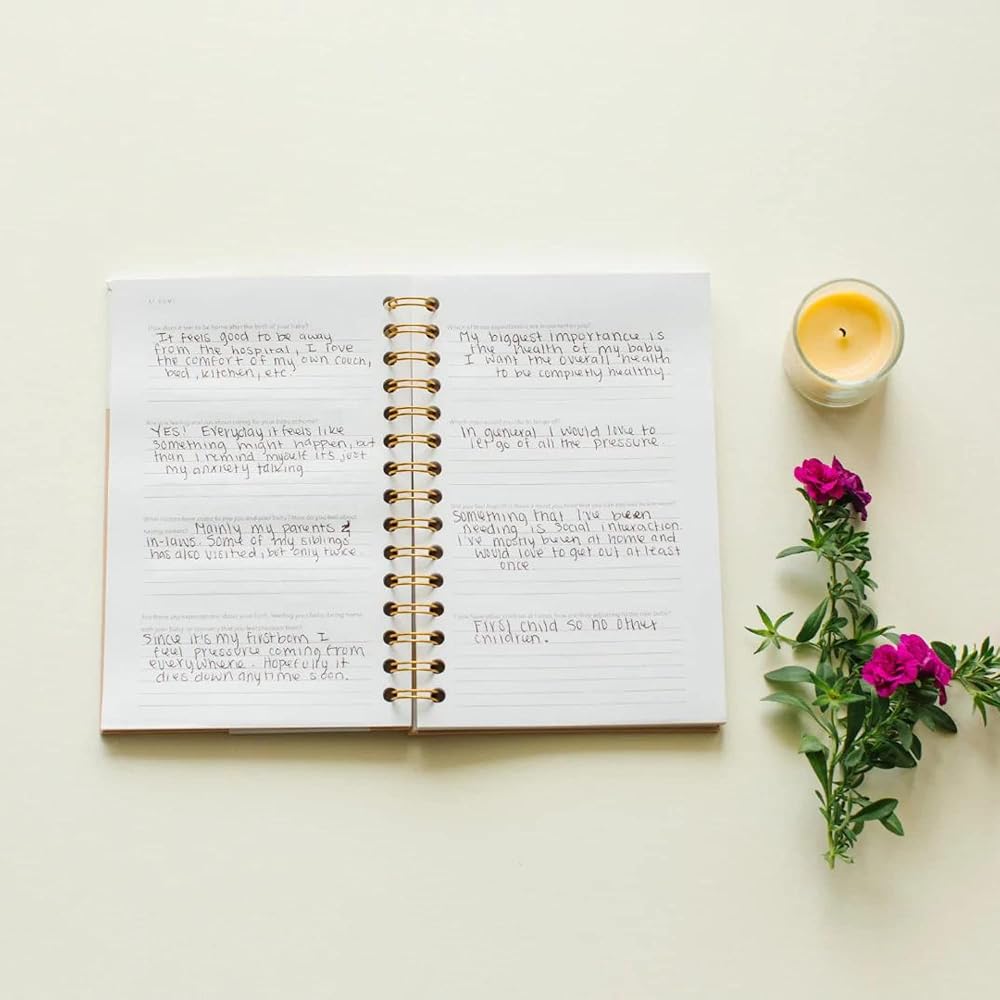 AT HOME
How does it feel to be home after the birth of your baby?
It feels good to be away
from the hospital, I love
the comfort of my own couch,
bed, kitchen, etc.
YES! Everyday it feels like
something might happen, but
than I remind myself it's just
my anxiety talking
Mainly my parents &
in-laws. Some of my siblings
has also visited, but only twice
Since it's my firstborn I
feel pressure coming from
everywhere. Hopefully it
dies down anytime soon.
My biggest importance is
the health of my baby
I want the overall health
to be completly healthy.
In general I would love to
let go of all the pressure.
Something that I've been
needing is social interaction.
I've mostly been at home and
would love to get out at least
once.
First child so no other
children.